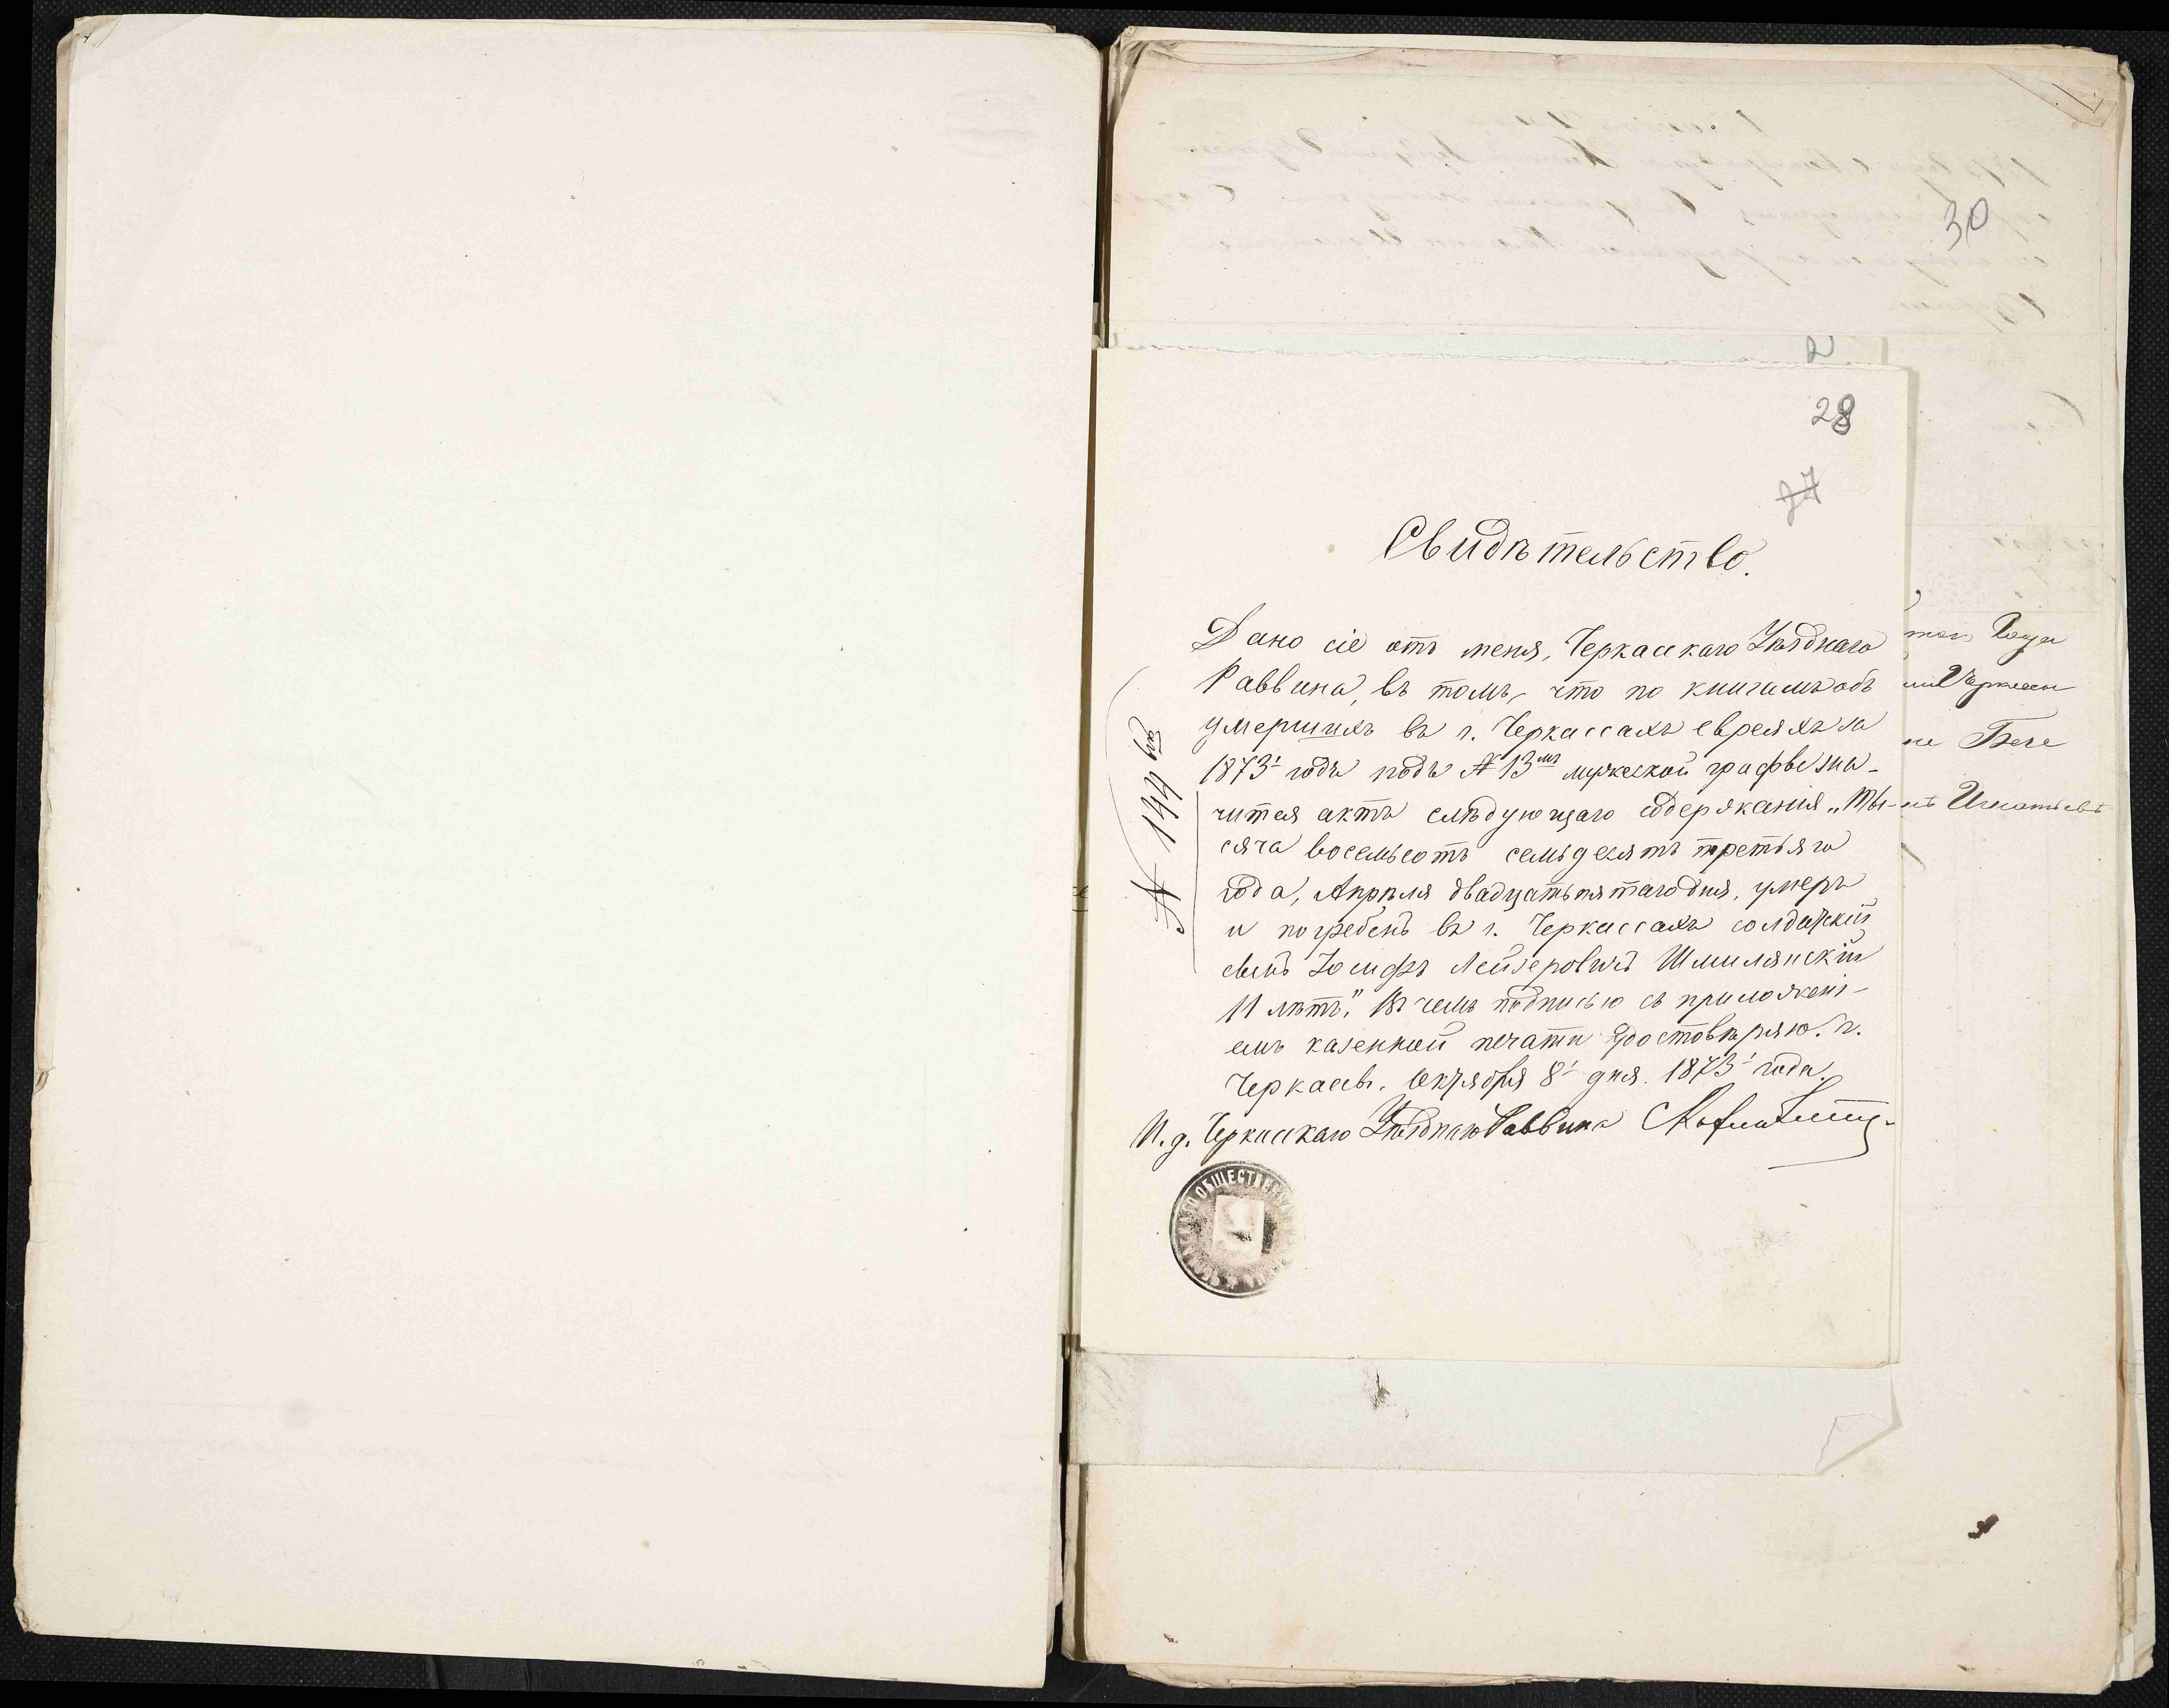 30
2
28
27
Свидѣтельство.
Дано сіе отъ меня, Черкасскаго Уѣзднаго
Раввина, въ томъ, что по книгамъ объ
умершихъ въ г. Черкассахъ евреяхъ за
1873й годъ подъ № 13мъ мужеской графѣ зна-
чится актъ слѣдующаго содержания „Ты-
сяча восемьсотъ семьдесятъ третьяго
года, Апрѣля двадцать пятаго дня, умеръ
и погребенъ въ г. Черкассахъ солдатскій
сынъ Іосифъ Лейзеровичъ Шмилянскій
11 лѣтъ." Въ чемъ подписью съ приложені-
емъ казенной печати удостовѣряю. г.
Черкассы. Октября 8й дня. 1873й года.
И. д. Черкасскаго Уѣзднаго Раввина
№ 144
ОБЩЕСТВЕН
Черкассы
Игнатьевъ